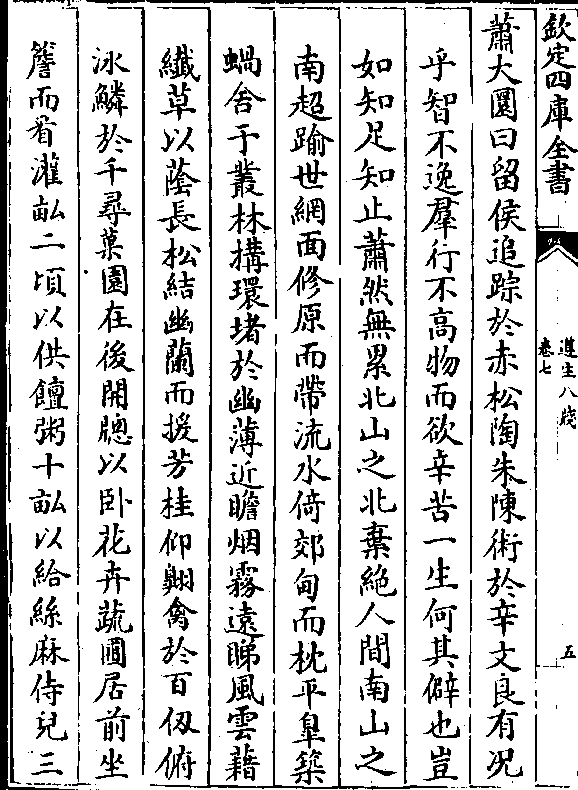 欽定四庫全書
遵生八牋
卷七
五
蕭大圜曰留侯追踪於赤松陶朱陳術於辛文良有況
乎智不逸羣行不高物而欲辛苦一生何其僻也豈
如知足知止蕭然無累北山之北棄絶人間南山之
南超踰世網面修原而帶流水倚郊甸而枕平臯築
蝸舎于叢林搆環堵於幽薄近瞻烟霧遠睇風雲藉
纎草以蔭長松結幽蘭而援芳桂仰翺禽於百仭俯
泳鱗於千尋菓園在後開牕以卧花卉蔬圃居前坐
簷而看灌畆二頃以供饘粥十畆以給絲麻侍兒三